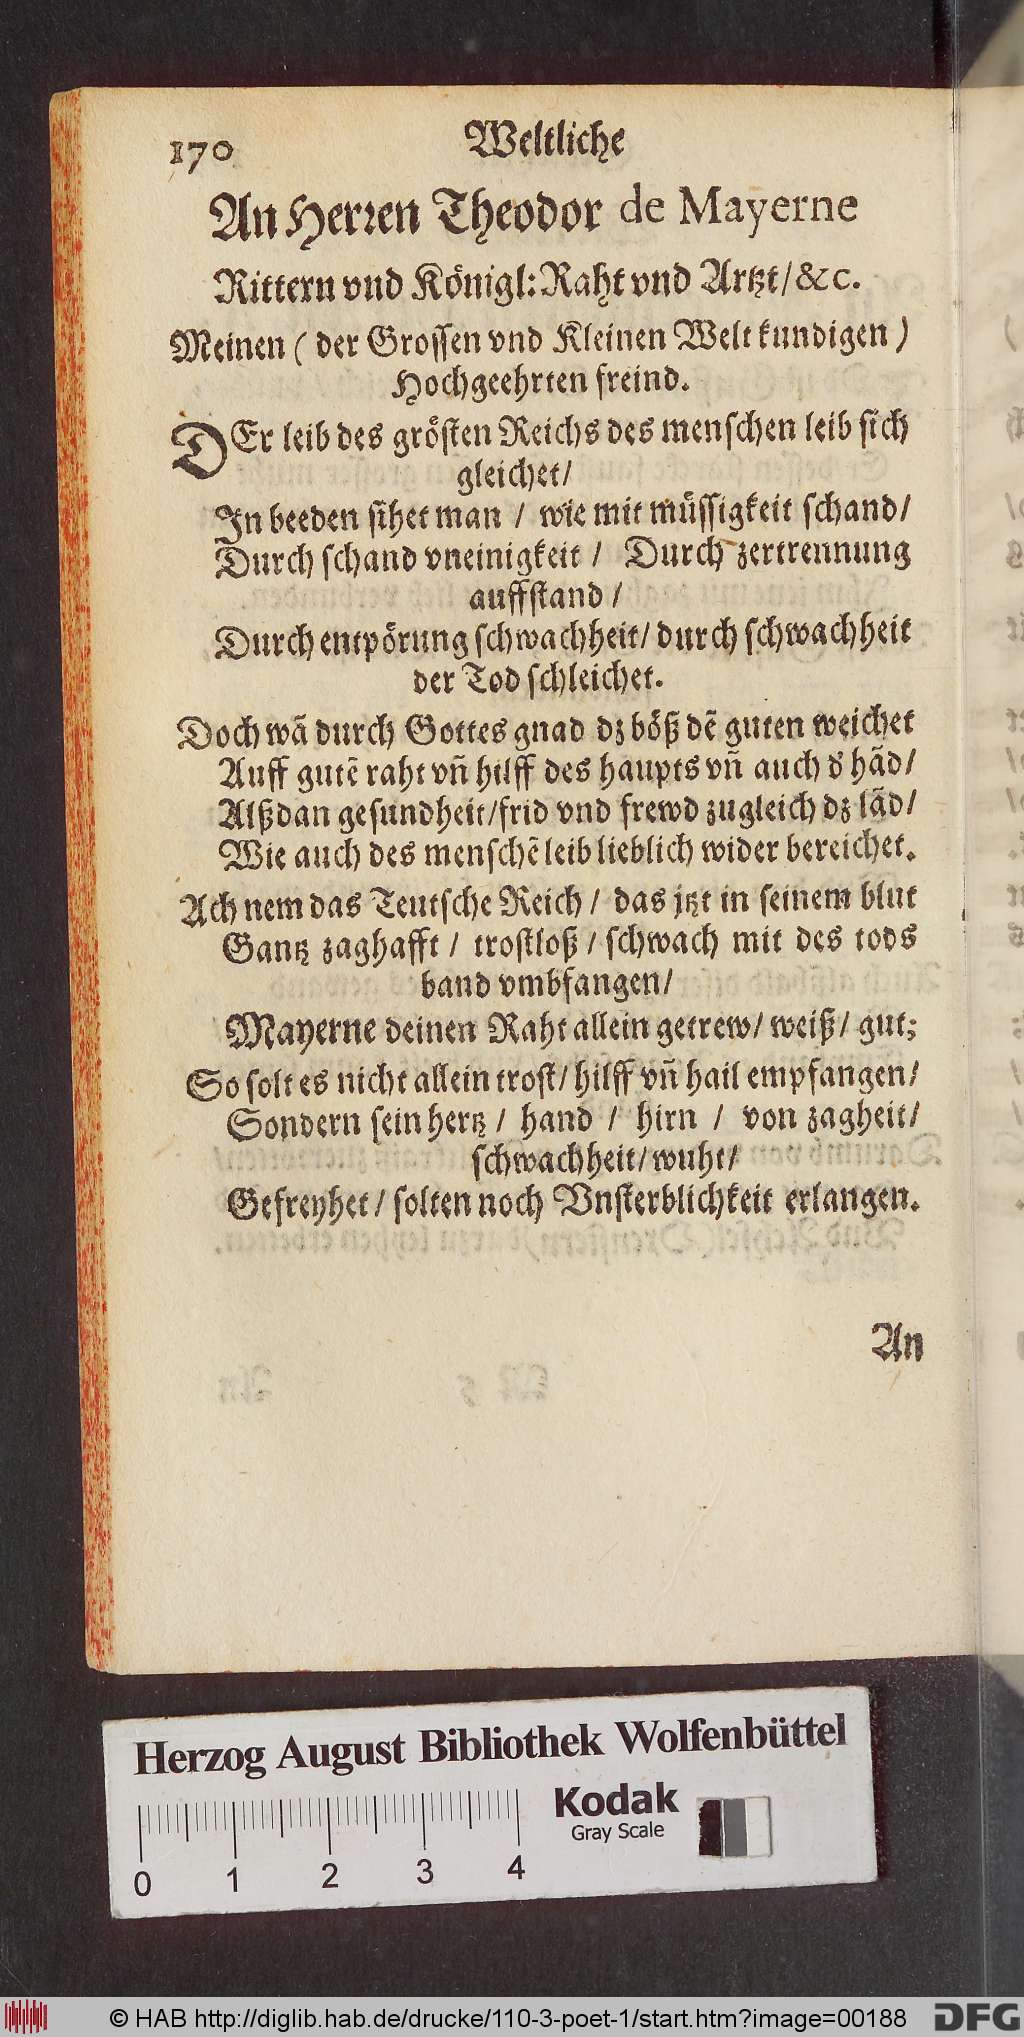 170 Weltliche
An Herren Theodor de Mayerne
Rittern vnd Königl: Raht vnd Artzt/ &c.
Meinen ( der Grossen vnd Kleinen Welt kundigen )
Hochgeehrten freind.
DEr leib des grösten Reichs des menschen leib sich
gleichet/
In beeden sihet man / wie mit müssigkeit schand/
Durch schand vneinigkeit / Durch zertrennung
auffstand /
Durch entpörung schwachheit/ durch schwachheit
der Tod schleichet.
Doch wã durch Gottes gnad dz böß dẽ guten weichet
Auff gutẽ raht vñ hilff des haupts vñ auch d' hãd/
Alßdan gesundheit/frid vnd frewd zugleich dz lãd/
Wie auch des menschẽ leib lieblich wider bereichet.
Ach nem das Teutsche Reich / das jtzt in seinem blut
Gantz zaghafft / trostloß / schwach mit des tods
band vmbfangen/
Mayerne deinen Raht allein getrew/ weiß/ gut;
So solt es nicht allein trost/ hilff vñ hail empfangen/
Sondern sein hertz / hand / hirn / von zagheit/
schwachheit/ wuht/
Gefreyhet/ solten noch Vnsterblichkeit erlangen.
An
Herzog August Bibliothek Wolfenbüttel
Kodak
Gray Scale
0 1 2 3 4
© HAB http://diglib.hab.de/drucke/110-3-poet-1/start.htm?image=00188 DFG